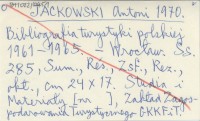 JACKOWSKI Antoni 1970.
Bibliografia turystyki polskiej
1961-1965. Wrocław. Ss.
285, Sum., Res., Zsf., Rez.,
okł., cm 24 x 17. Studia i
Materiały [nr ], Zakład Zagos-
podarowania Turystycznego GKKFiT!